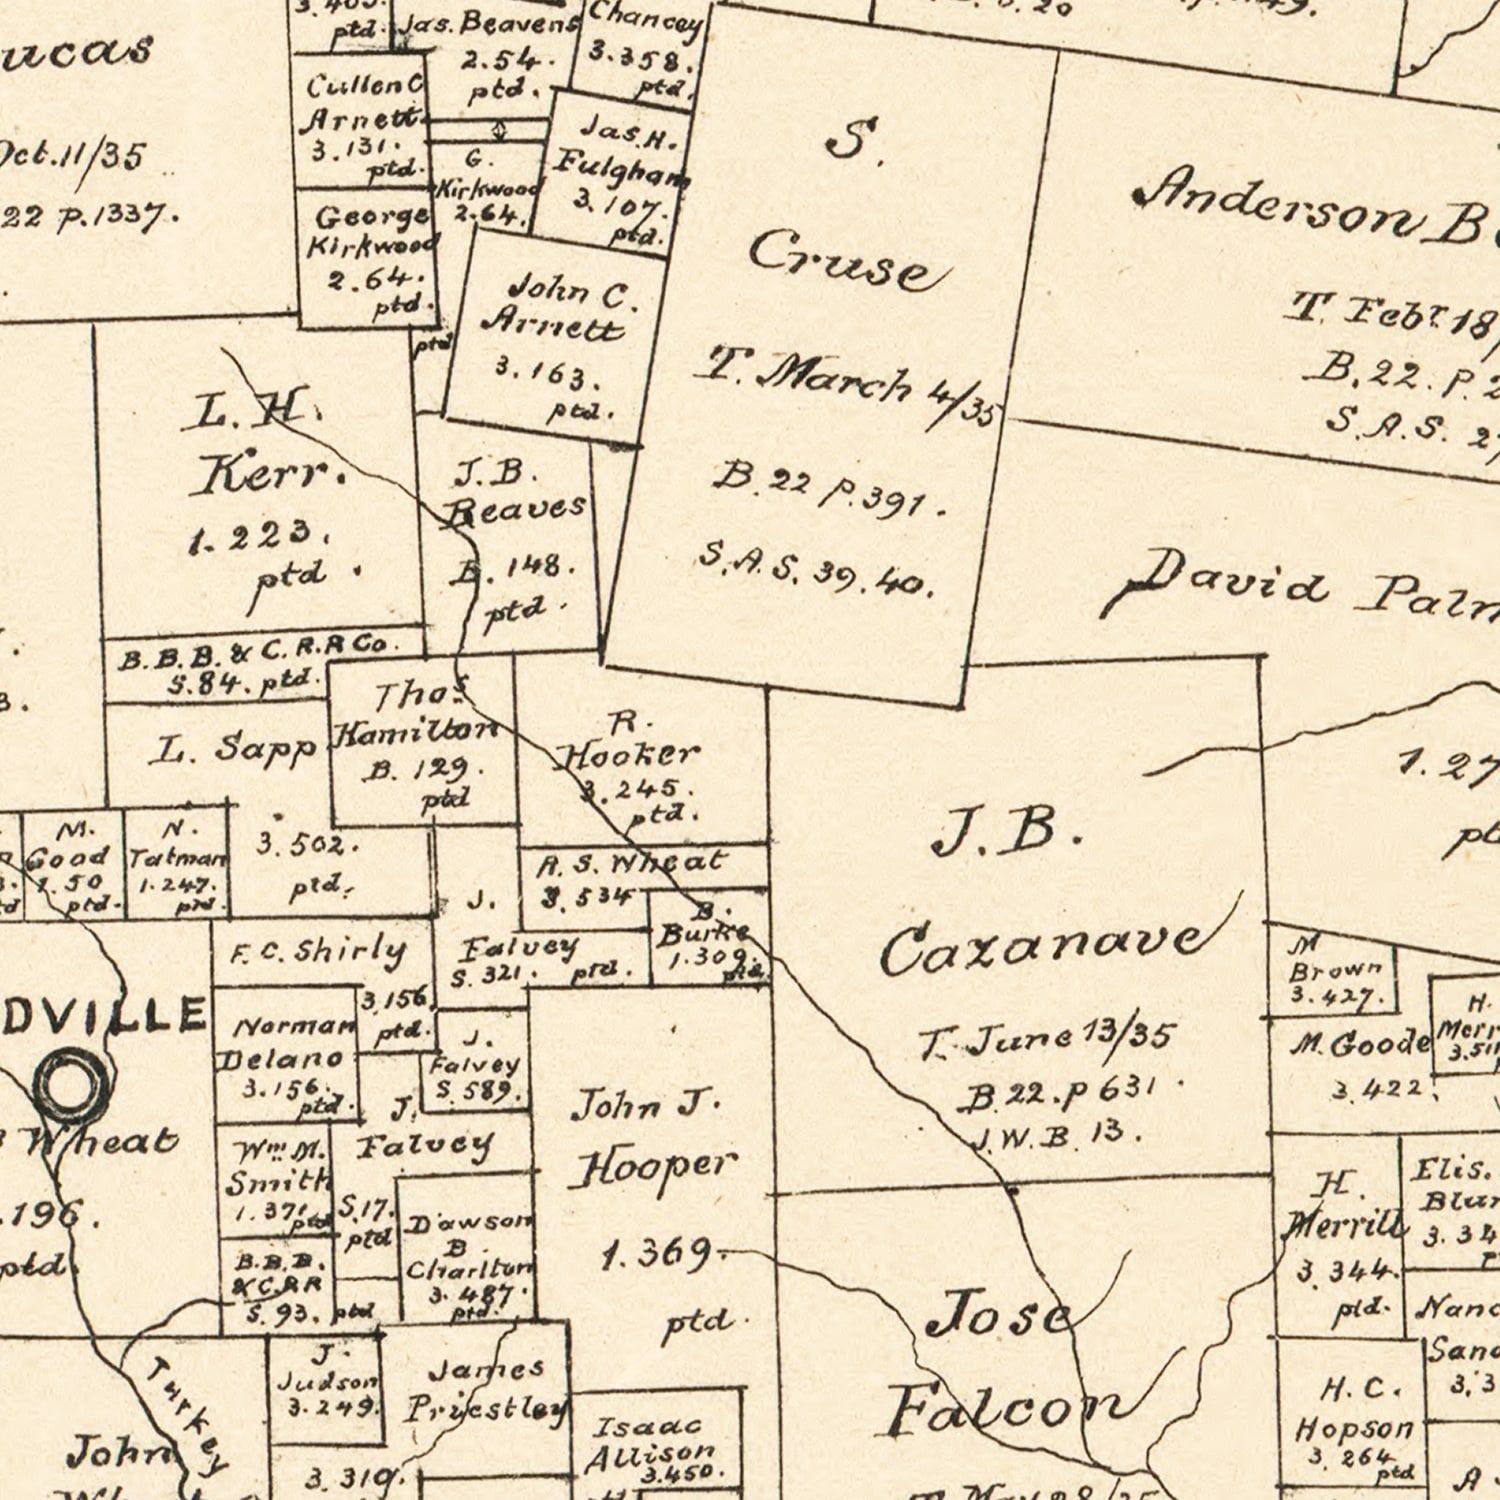 ptd.
Jas. Beavens
2.54.
ptd.
Chancey
3.358.
ptd.
Cullen C
Arnett.
3.131.
ptd.
Oct.11/35
22 P.1337.
G.
Kirkwood
2.64.
Jas. H.
Fulgham
3.107.
ptd.
George
Kirkwood
2.64.
ptd.
ptd
John C.
Arnett
3.163.
ptd.
S.
Cruse
T. March 4/35
B.22 P.391.
S.A.S. 39.40.
Anderson
T. Febr 18/
B.22. P.2
S.A.S. 2
David
L. H.
Kerr.
1.223.
ptd.
J. B.
Beaves
B. 148.
ptd.
B. B. B. & C. R. R Co.
S.84. ptd.
L. Sapp
3.502.
ptd.
Thos
Hamilton
B. 129.
ptd
R.
Hooker
3.245.
ptd.
A. S. Wheat
3.534
B.
Burke
1.309.
ptd.
M.
Good
1.50
ptd.
N.
Tatman
1.247.
ptd.
J.
Falvey
S.321. ptd.
F. C. Shirly
3.156
ptd.
Norman
Delano
3.156.
ptd.
J.
Falvey
S.589.
J.
Falvey
S.17.
ptd
ptd
DVILLE
Wheat
.196.
ptd.
Wm M.
Smith
1.371
ptd
B.B.B.
& C.R.R
S.93.
Dawson
B.
Charlton
3.487.
ptd.
John J.
Hooper
1.369.
ptd.
J. B.
Cazanave
T. June 13/35
B.22. P 631.
J.W.B. 13.
1.27
M
Brown
3.427.
M. Goode
3.422.
H.
Merr
3.511
H.
Merrill
3.344.
ptd.
Elis.
Blu
3.34
Nanc
Sand
3.3
Jose
Falcon
H. C.
Hopson
3.264
ptd
A
Turkey
John
J.
Judson
3.249.
James
Priestley
3.319.
Isaac
Allison
3.450.